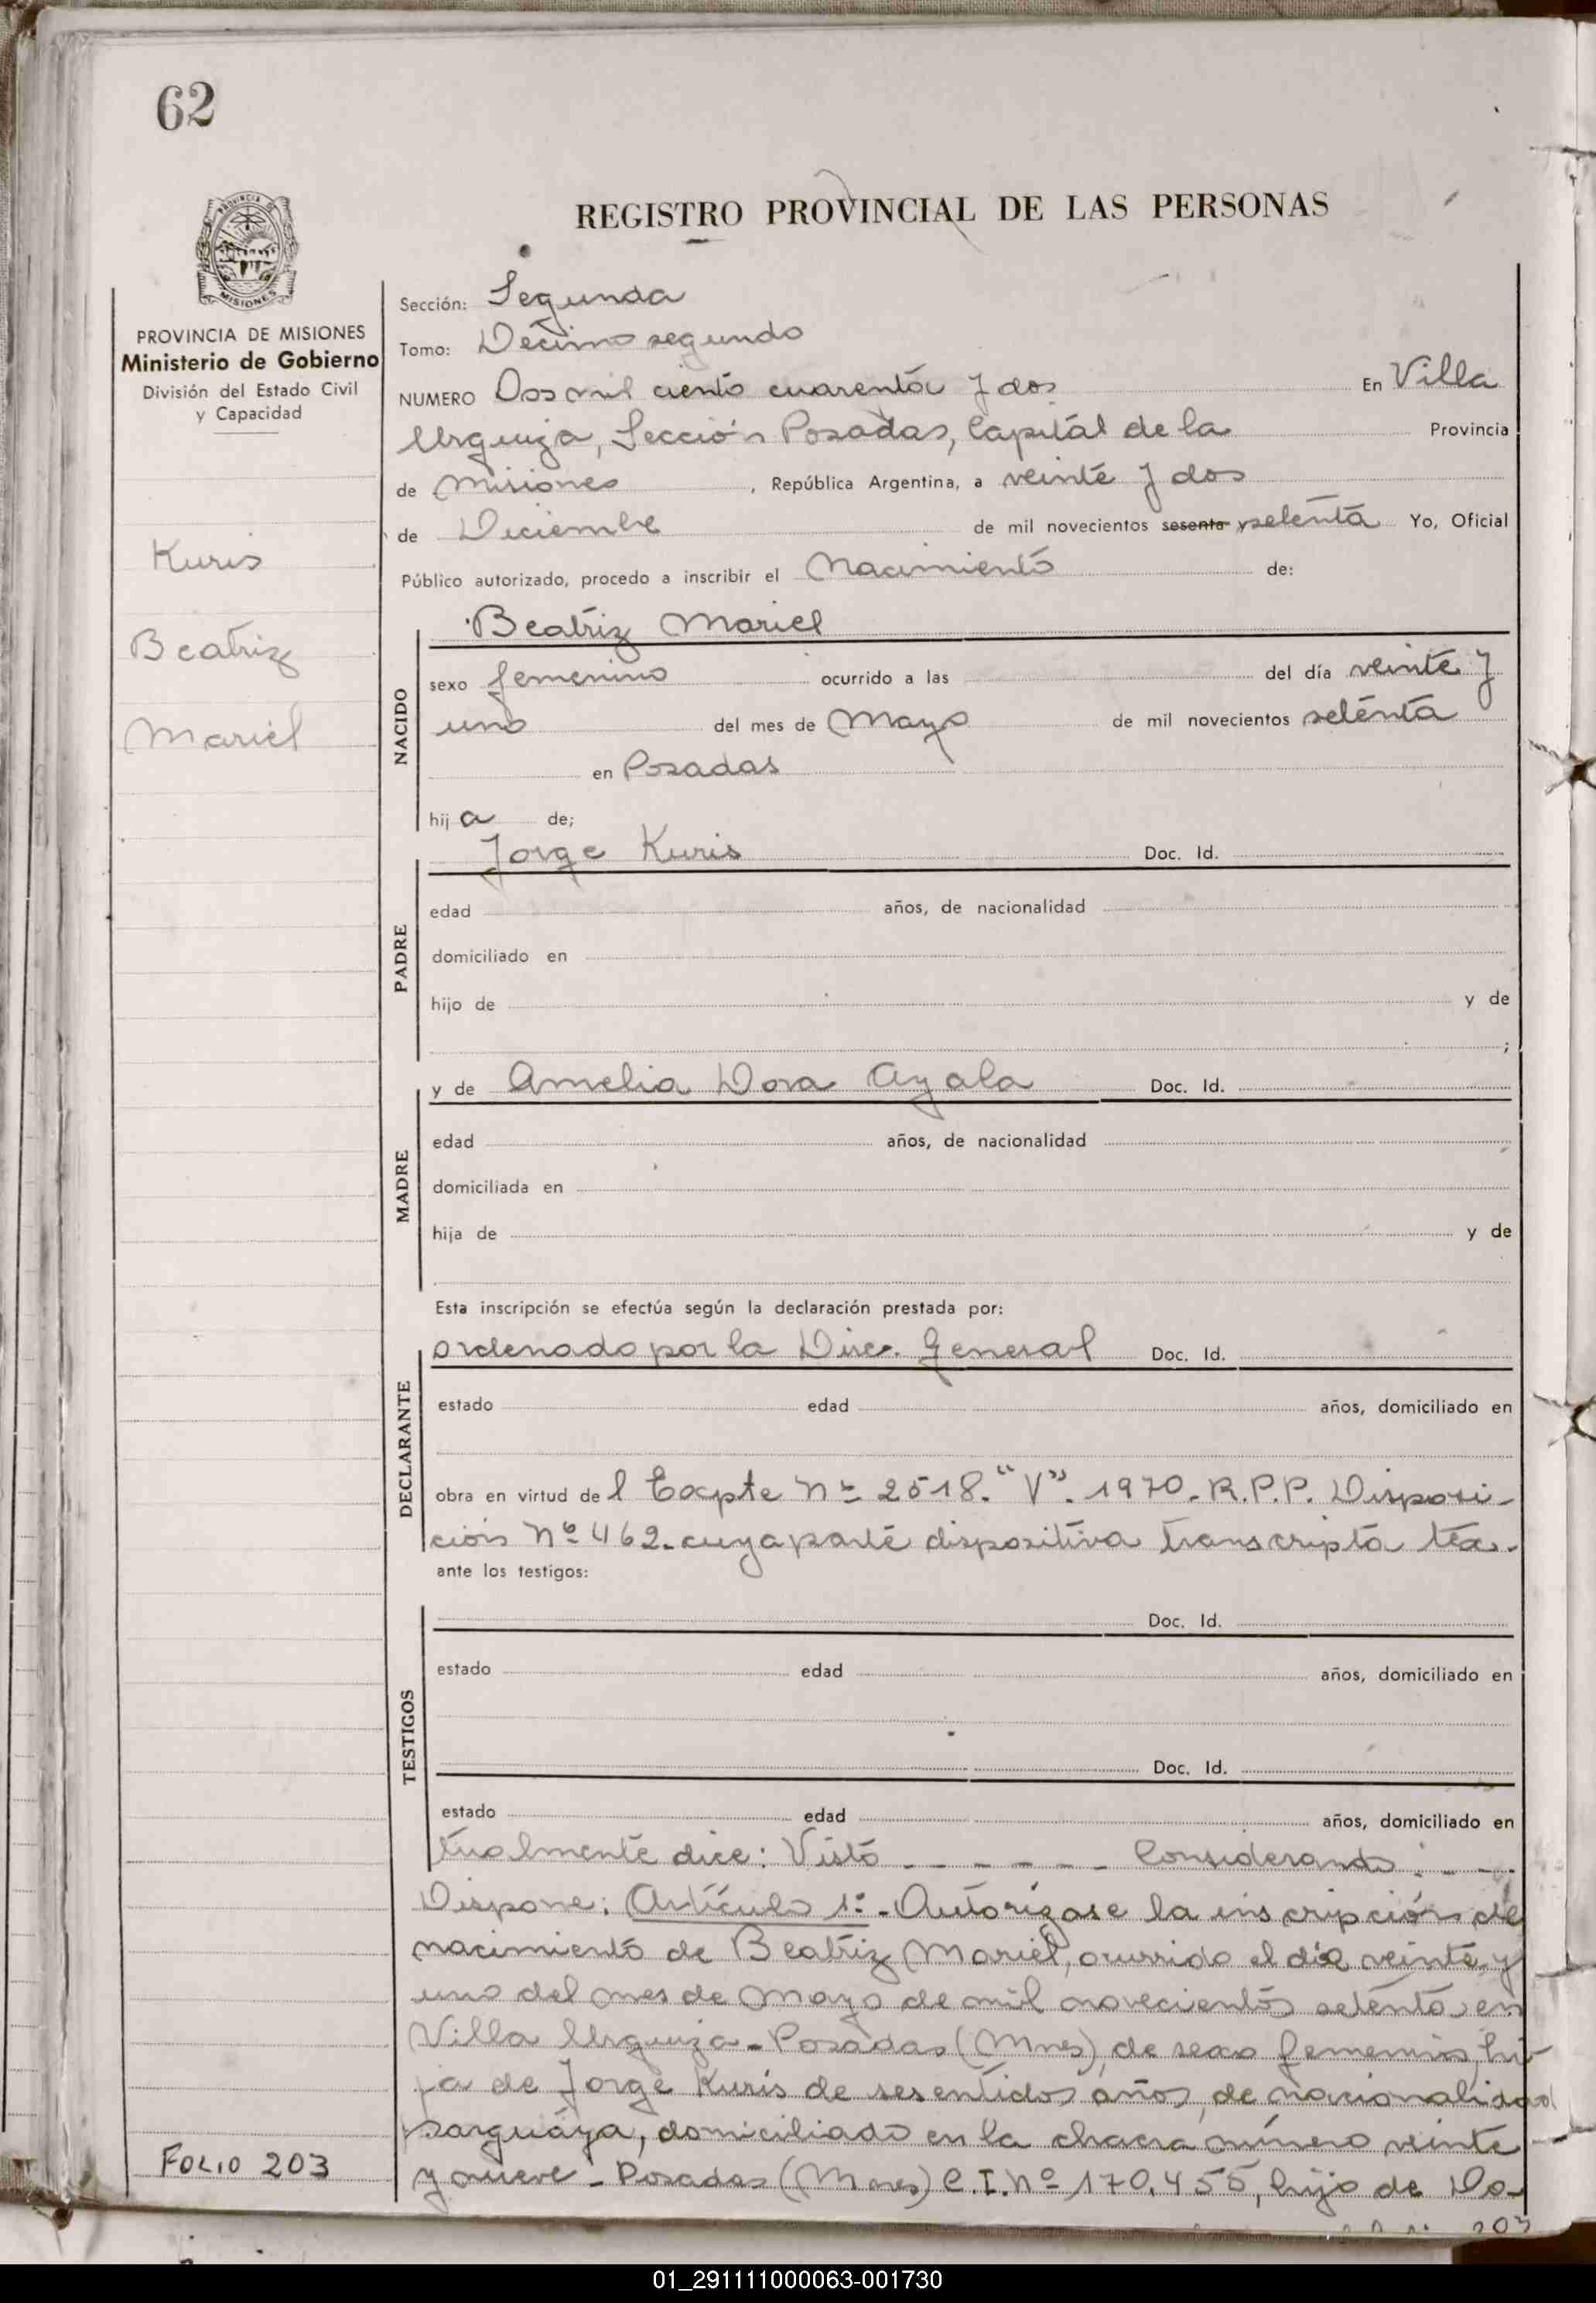 62
REGISTRO PROVINCIAL DE LAS PERSONAS
PROVINCIA DE MISIONES
MISIONES
PROVINCIA DE MISIONES
Ministerio de Gobierno
División del Estado Civil
y Capacidad
Kuris
Beatriz
Mariel
Sección: Segunda
Tomo: Décimo segundo
NUMERO Dos mil ciento cuarenta y dos En Villa
Urquiza, Sección Posadas, Capital de la Provincia
de Misiones, República Argentina, a veinte y dos
de Diciembre de mil novecientos sesenta y setenta Yo, Oficial
Público autorizado, procedo a inscribir el Nacimiento de:
NACIDO
Beatriz Mariel
sexo femenino ocurrido a las del día veinte y
uno del mes de Mayo de mil novecientos setenta
en Posadas
hija de;
PADRE
Jorge Kuris Doc. Id.
edad años, de nacionalidad
domiciliado en
hijo de y de
;
MADRE
y de Amelia Dora Ayala Doc. Id.
edad años, de nacionalidad
domiciliada en
hija de y de
Esta inscripción se efectúa según la declaración prestada por:
DECLARANTE
ordenado por la Direc. General Doc. Id.
estado edad años, domiciliado en
obra en virtud del Expte Nº 2518. "V". 1970. R.P.P. Disposi-
ción Nº 462. cuya parte dispositiva transcripta tex-
ante los testigos:
TESTIGOS
Doc. Id.
estado edad años, domiciliado en
Doc. Id.
estado edad años, domiciliado en
tualmente dice: Visto - - - - - Considerando: - - -
Dispone: Artículo 1º - Autorízase la inscripción del
nacimiento de Beatriz Mariel, ocurrido el día veinte y
uno del mes de Mayo de mil novecientos setenta en
Villa Urquiza - Posadas (Mnes), de sexo femenino, hi-
ja de Jorge Kuris de sesentidos años, de nacionalidad
paraguaya, domiciliado en la chacra número veinte
y nueve - Posadas (Mnes) C.I. Nº 170.455, hijo de Do-
FOLIO 203
203
01_291111000063-001730